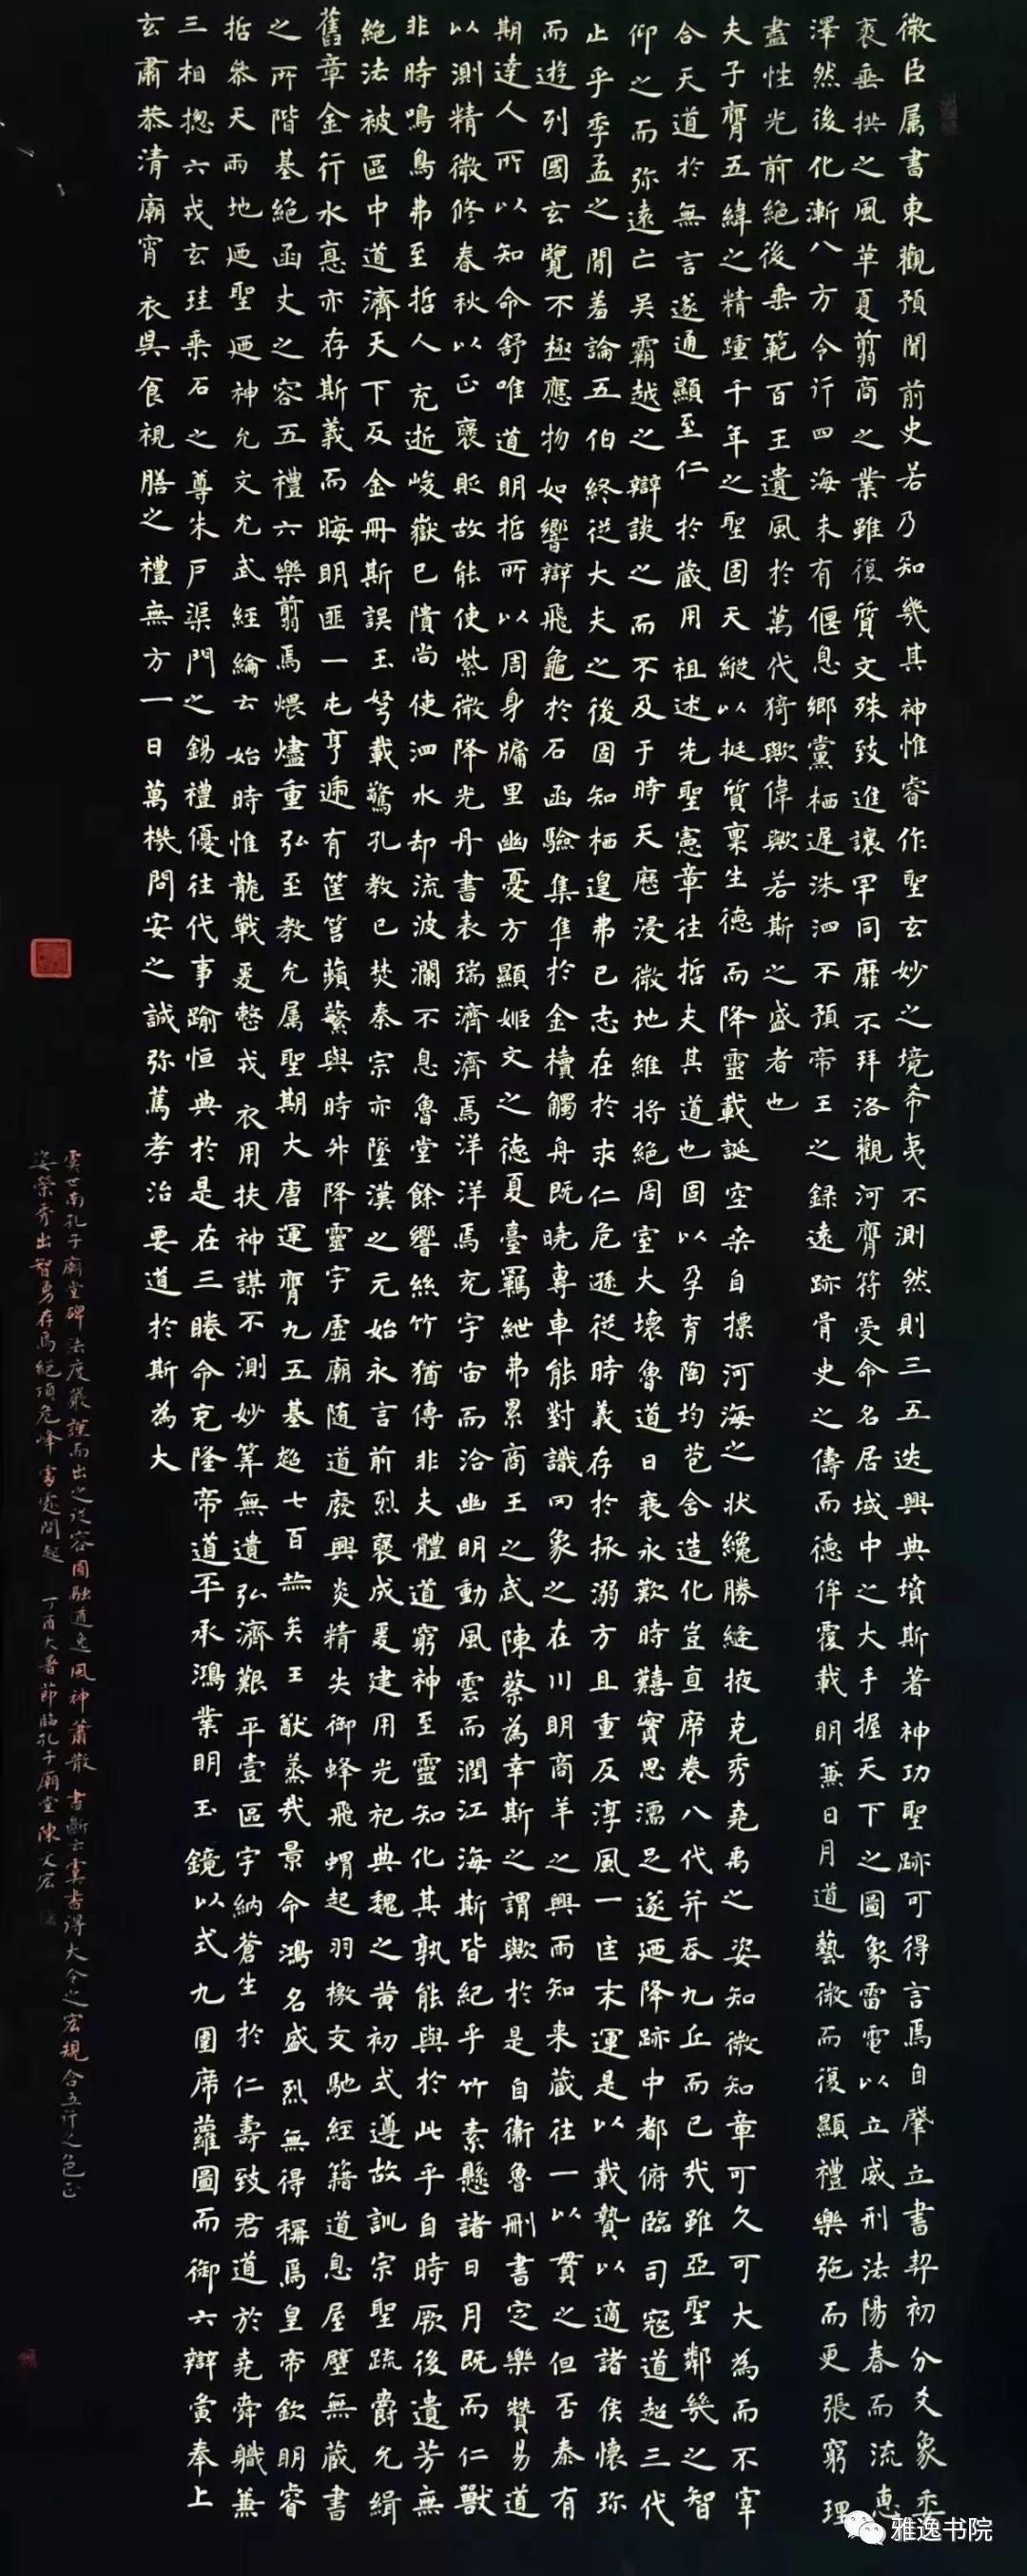 微臣属書東觀預聞前史若乃知幾其神惟睿作聖玄妙之境希夷不測然則三五迭興典墳斯著神功聖跡可得言焉自肇立書契初分爻象委
裘垂拱之風革夏翦商之業雖復質文殊致進讓罕同靡不拜洛觀河膺符受命名居域中之大手握天下之圖象雷電以立威刑法陽春而流恵
澤然後化漸八方令行四海未有偃息鄉黨栖遲洙泗不預帝王之録遠跡胥史之儔而德侔覆載明兼日月道藝微而復顯禮樂弛而更張窮理
盡性光前絶後垂範百王遺風於萬代猗歟偉歟若斯之盛者也
夫子膺五緯之精踵千年之聖固天縱以挺質稟生德而降靈載誕空桒自摽河海之狀纔勝縫掖克秀堯禹之姿知微知章可久可大為而不宰
合天道於無言遂通顯至仁於蔵用祖述先聖憲章往哲夫其道也固以孕育陶均苞含造化豈直席卷八代并吞九丘而已㢤雖亞聖鄰幾之智
仰之而弥遠亡吴霸越之辯談之而不及于時天厯浸微地維将絶周室大壞魯道日衰永歎時囏實思濡足遂廼降跡中都俯臨司寇道超三代
止乎季孟之閒羞論五伯終從大夫之後固知栖遑弗已志在於求仁危遜從時義存於拯溺方且重反淳風一匡末運是以載贄以適諸侯懷珎
而遊列國玄覽不極應物如響辯飛龜於石函驗集隼於金櫝觸舟既曉専車能對識罔象之在川明商羊之興雨知来蔵往一以貫之但否泰有
期達人所以知命舒唯道明哲所以周身牖里幽憂方顯姬文之徳夏臺羈紲弗累商王之武陳蔡為幸斯之謂歟於是自衛魯刪書定樂贊易道
以測精微修春秋以正襃貶故能使紫微降光丹書表瑞濟濟焉洋洋焉充宇宙而洽幽明動風雲而潤江海斯皆紀乎竹素懸諸日月既而仁獸
非時鳴鳥弗至哲人充逝峻嶽已隤尚使泗水却流波瀾不息魯堂餘響絲竹猶傳非夫體道窮神至靈知化其孰能與於此乎自時厥後遺芳無
絶法被區中道濟天下反金冊斯誤玉弩載驚孔教已焚秦宗亦墜漢之元始永言前烈襃成爰建用光祀典魏之黄初式遵故訓宗聖疏爵允緝
舊章金行水悳亦存斯義而晦明匪一屯亨遞有筐筥蘋蘩與時升降靈宇虛廟随道廢興炎精失御蜂飛蝟起羽檄交馳經籍道息屋壁無蔵書
之所階基絶函丈之容五禮六樂翦焉煨燼重弘至教允属聖期大唐運膺九五基超七百赫矣王猷蒸㢤景命鴻名盛烈無得稱焉皇帝欽明睿
哲叅天兩地廼聖廼神允文允武經綸云始時惟龍戰爰整戎衣用扶神謀不測妙筭無遺弘濟艱平壹區宇納蒼生於仁壽致君道於堯舜職兼
三相揔六戎玄珪乘石之尊朱戸渠門之錫禮優往代事踰恒典於是在三眷命克隆帝道丕承鴻業明玉鏡以式九圍席蘿圖而御六辯夤奉上
玄肅恭清廟宵衣旲食視膳之禮無方一日萬機問安之誠弥篤孝治要道於斯為大
虞世南孔子廟堂碑法度嚴謹而出之從容圓融遒逸風神蕭散書斷云虞書得大令之宏規含五行之色正
姿榮秀出智勇存焉絕頂危峰處處間起丁酉大暑節臨孔子廟堂陳文宏
雅逸书院